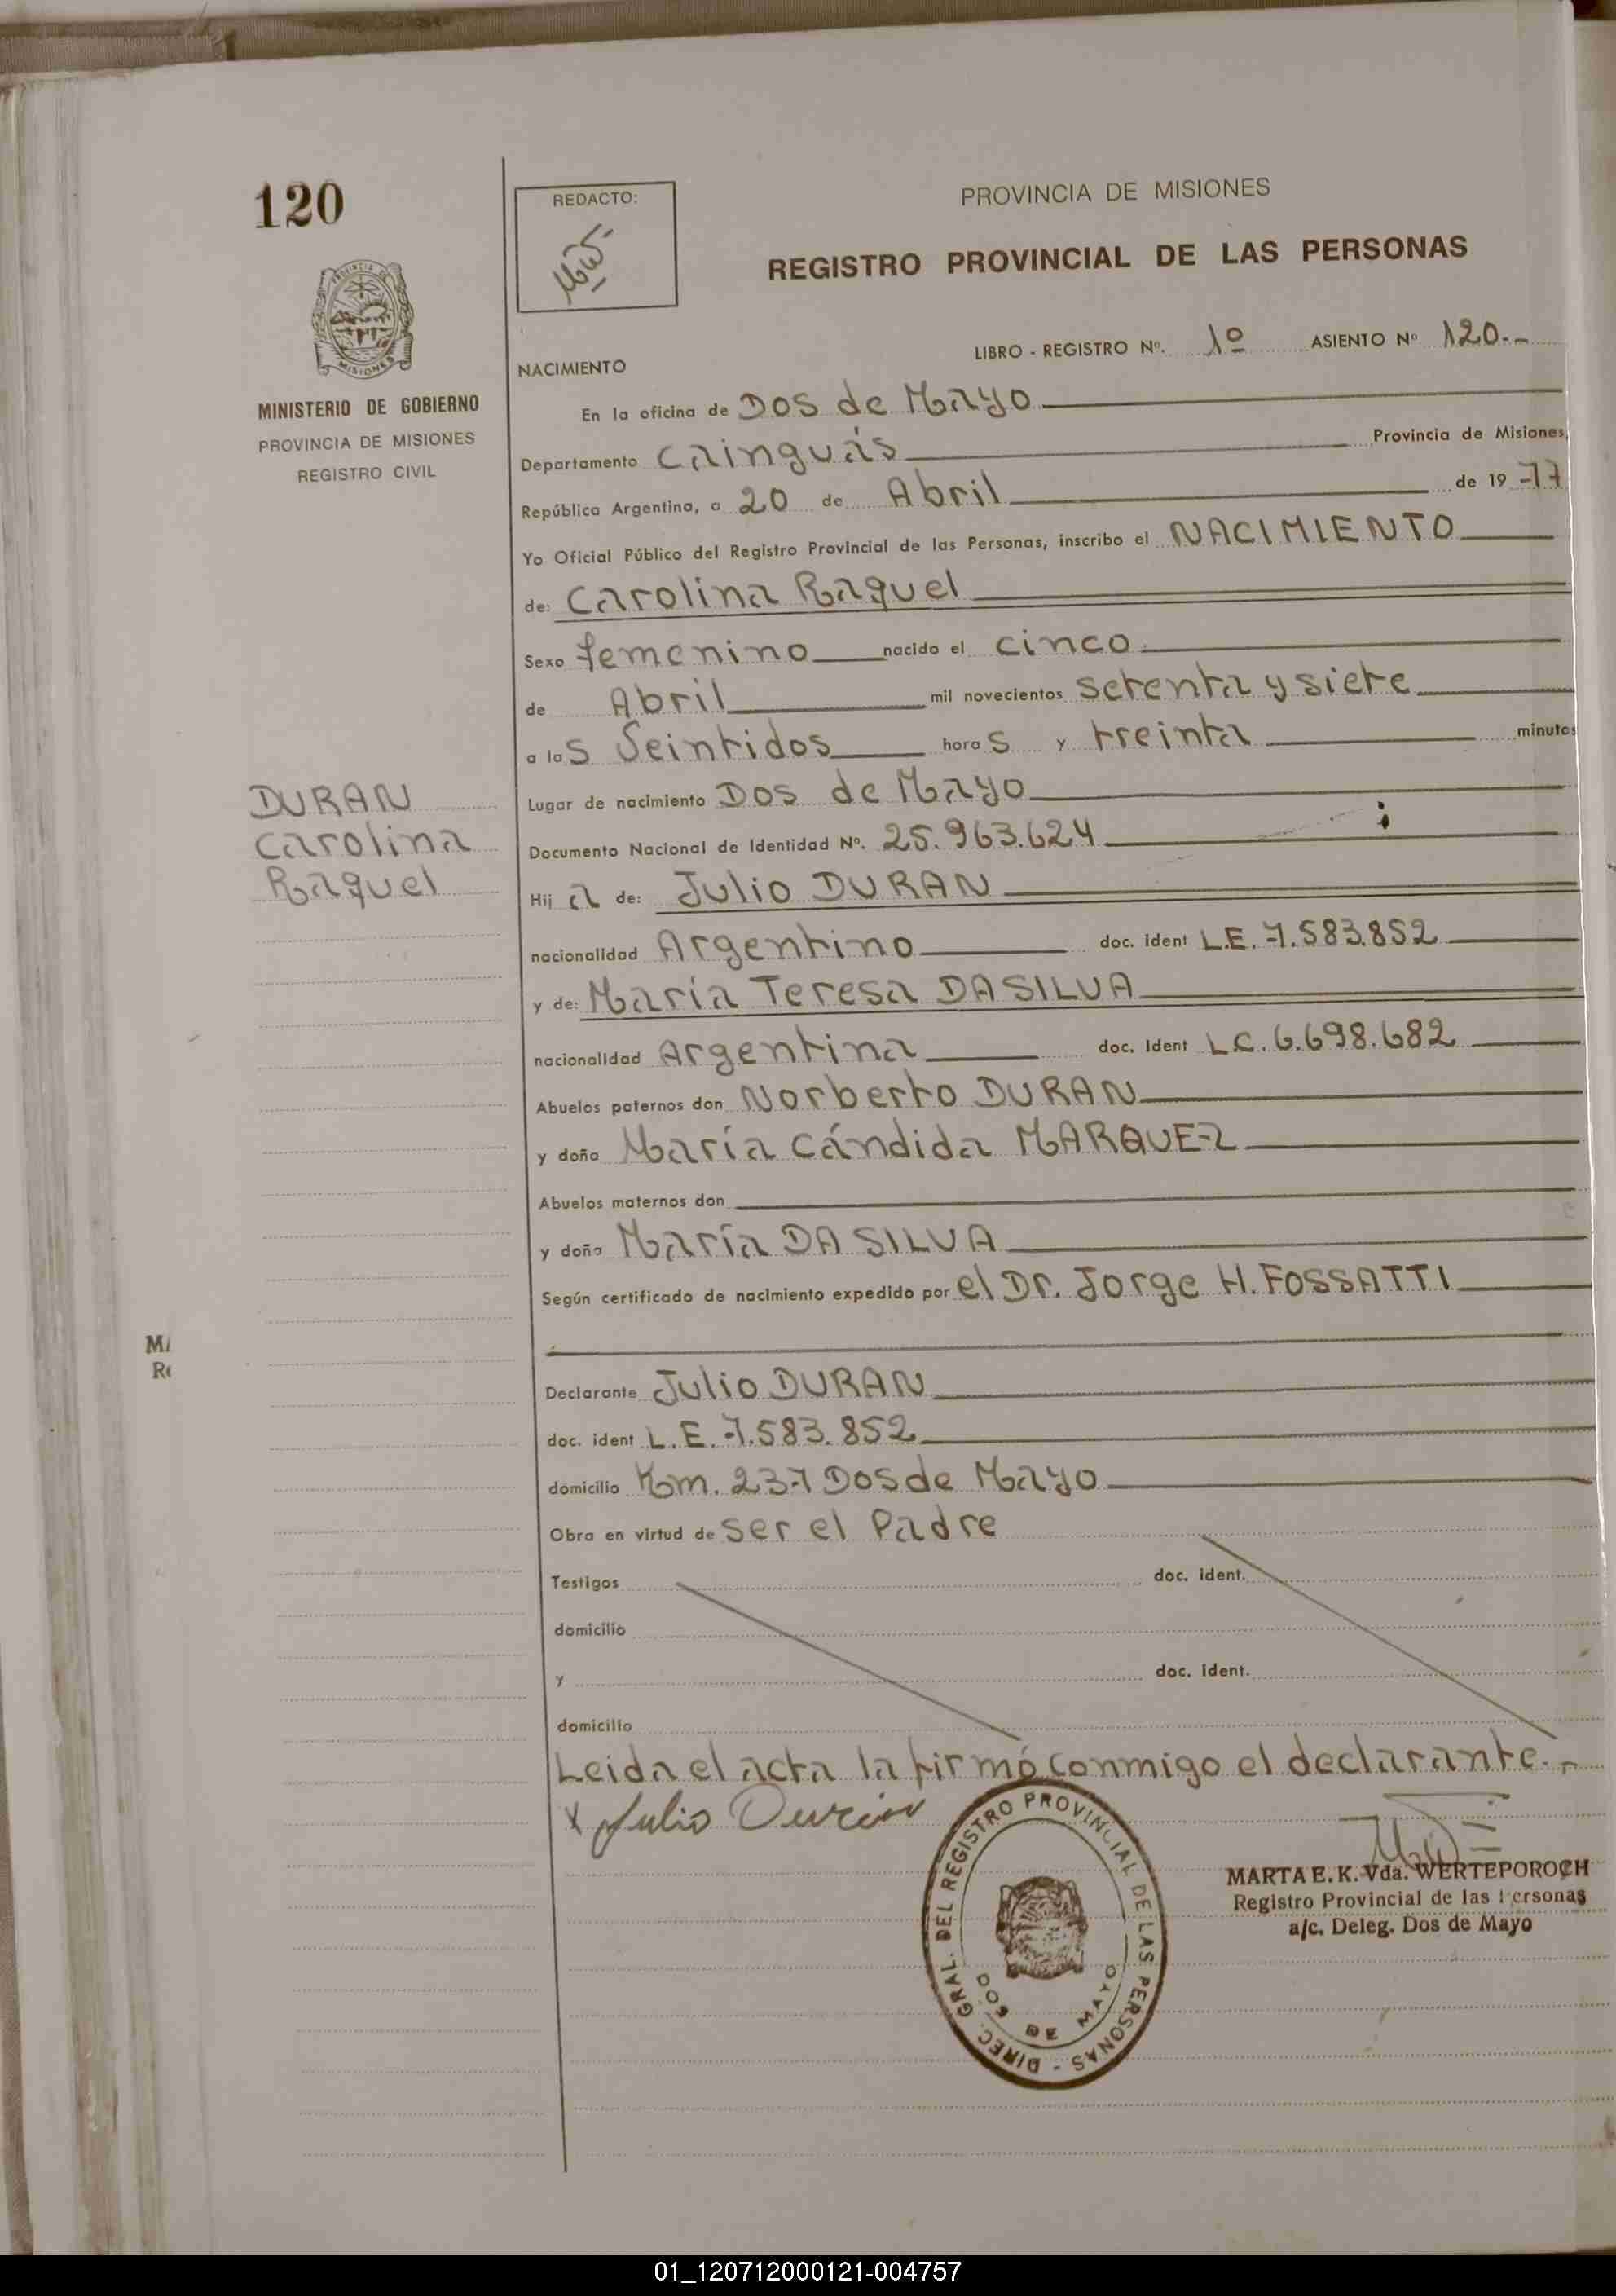 120
REDACTO:
PROVINCIA DE MISIONES
REGISTRO PROVINCIAL DE LAS PERSONAS
PROVINCIA DE
MISIONES
MINISTERIO DE GOBIERNO
PROVINCIA DE MISIONES
REGISTRO CIVIL
LIBRO - REGISTRO Nº. 1º ASIENTO Nº 120.-
NACIMIENTO
En la oficina de Dos de Mayo
Departamento Cainguás Provincia de Misiones,
República Argentina, a 20 de Abril de 19 77
Yo Oficial Público del Registro Provincial de las Personas, inscribo el NACIMIENTO
de: Carolina Raquel
Sexo femenino nacido el cinco
de Abril mil novecientos setenta y siete
a las Veintidos horas y treinta minutos
Lugar de nacimiento Dos de Mayo
Documento Nacional de Identidad Nº. 25.963.624
DURAN
Carolina
Raquel
Hija de: Julio DURAN
nacionalidad Argentino doc. ident L.E. 7.583.852
y de: María Teresa DA SILVA
nacionalidad Argentina doc. Ident L.C. 6.698.682
Abuelos paternos don Norberto DURAN
y doña María Cándida MARQUEZ
Abuelos maternos don
y doña María DA SILVA
Según certificado de nacimiento expedido por el Dr. Jorge H. FOSSATTI
Declarante Julio DURAN
doc. ident L.E. 7.583.852
domicilio Km. 237 Dos de Mayo
Obra en virtud de ser el Padre
Testigos doc. ident.
domicilio
y doc. ident.
domicilio
Leida el acta la firmó conmigo el declarante.-
x Julio Duran
DIREC. GRAL. DEL REGISTRO PROVINCIAL DE LAS PERSONAS -
DOS DE MAYO
MARTA E. K. Vda. WERTEPOROCH
Registro Provincial de las Personas
a/c. Deleg. Dos de Mayo
01_120712000121-004757